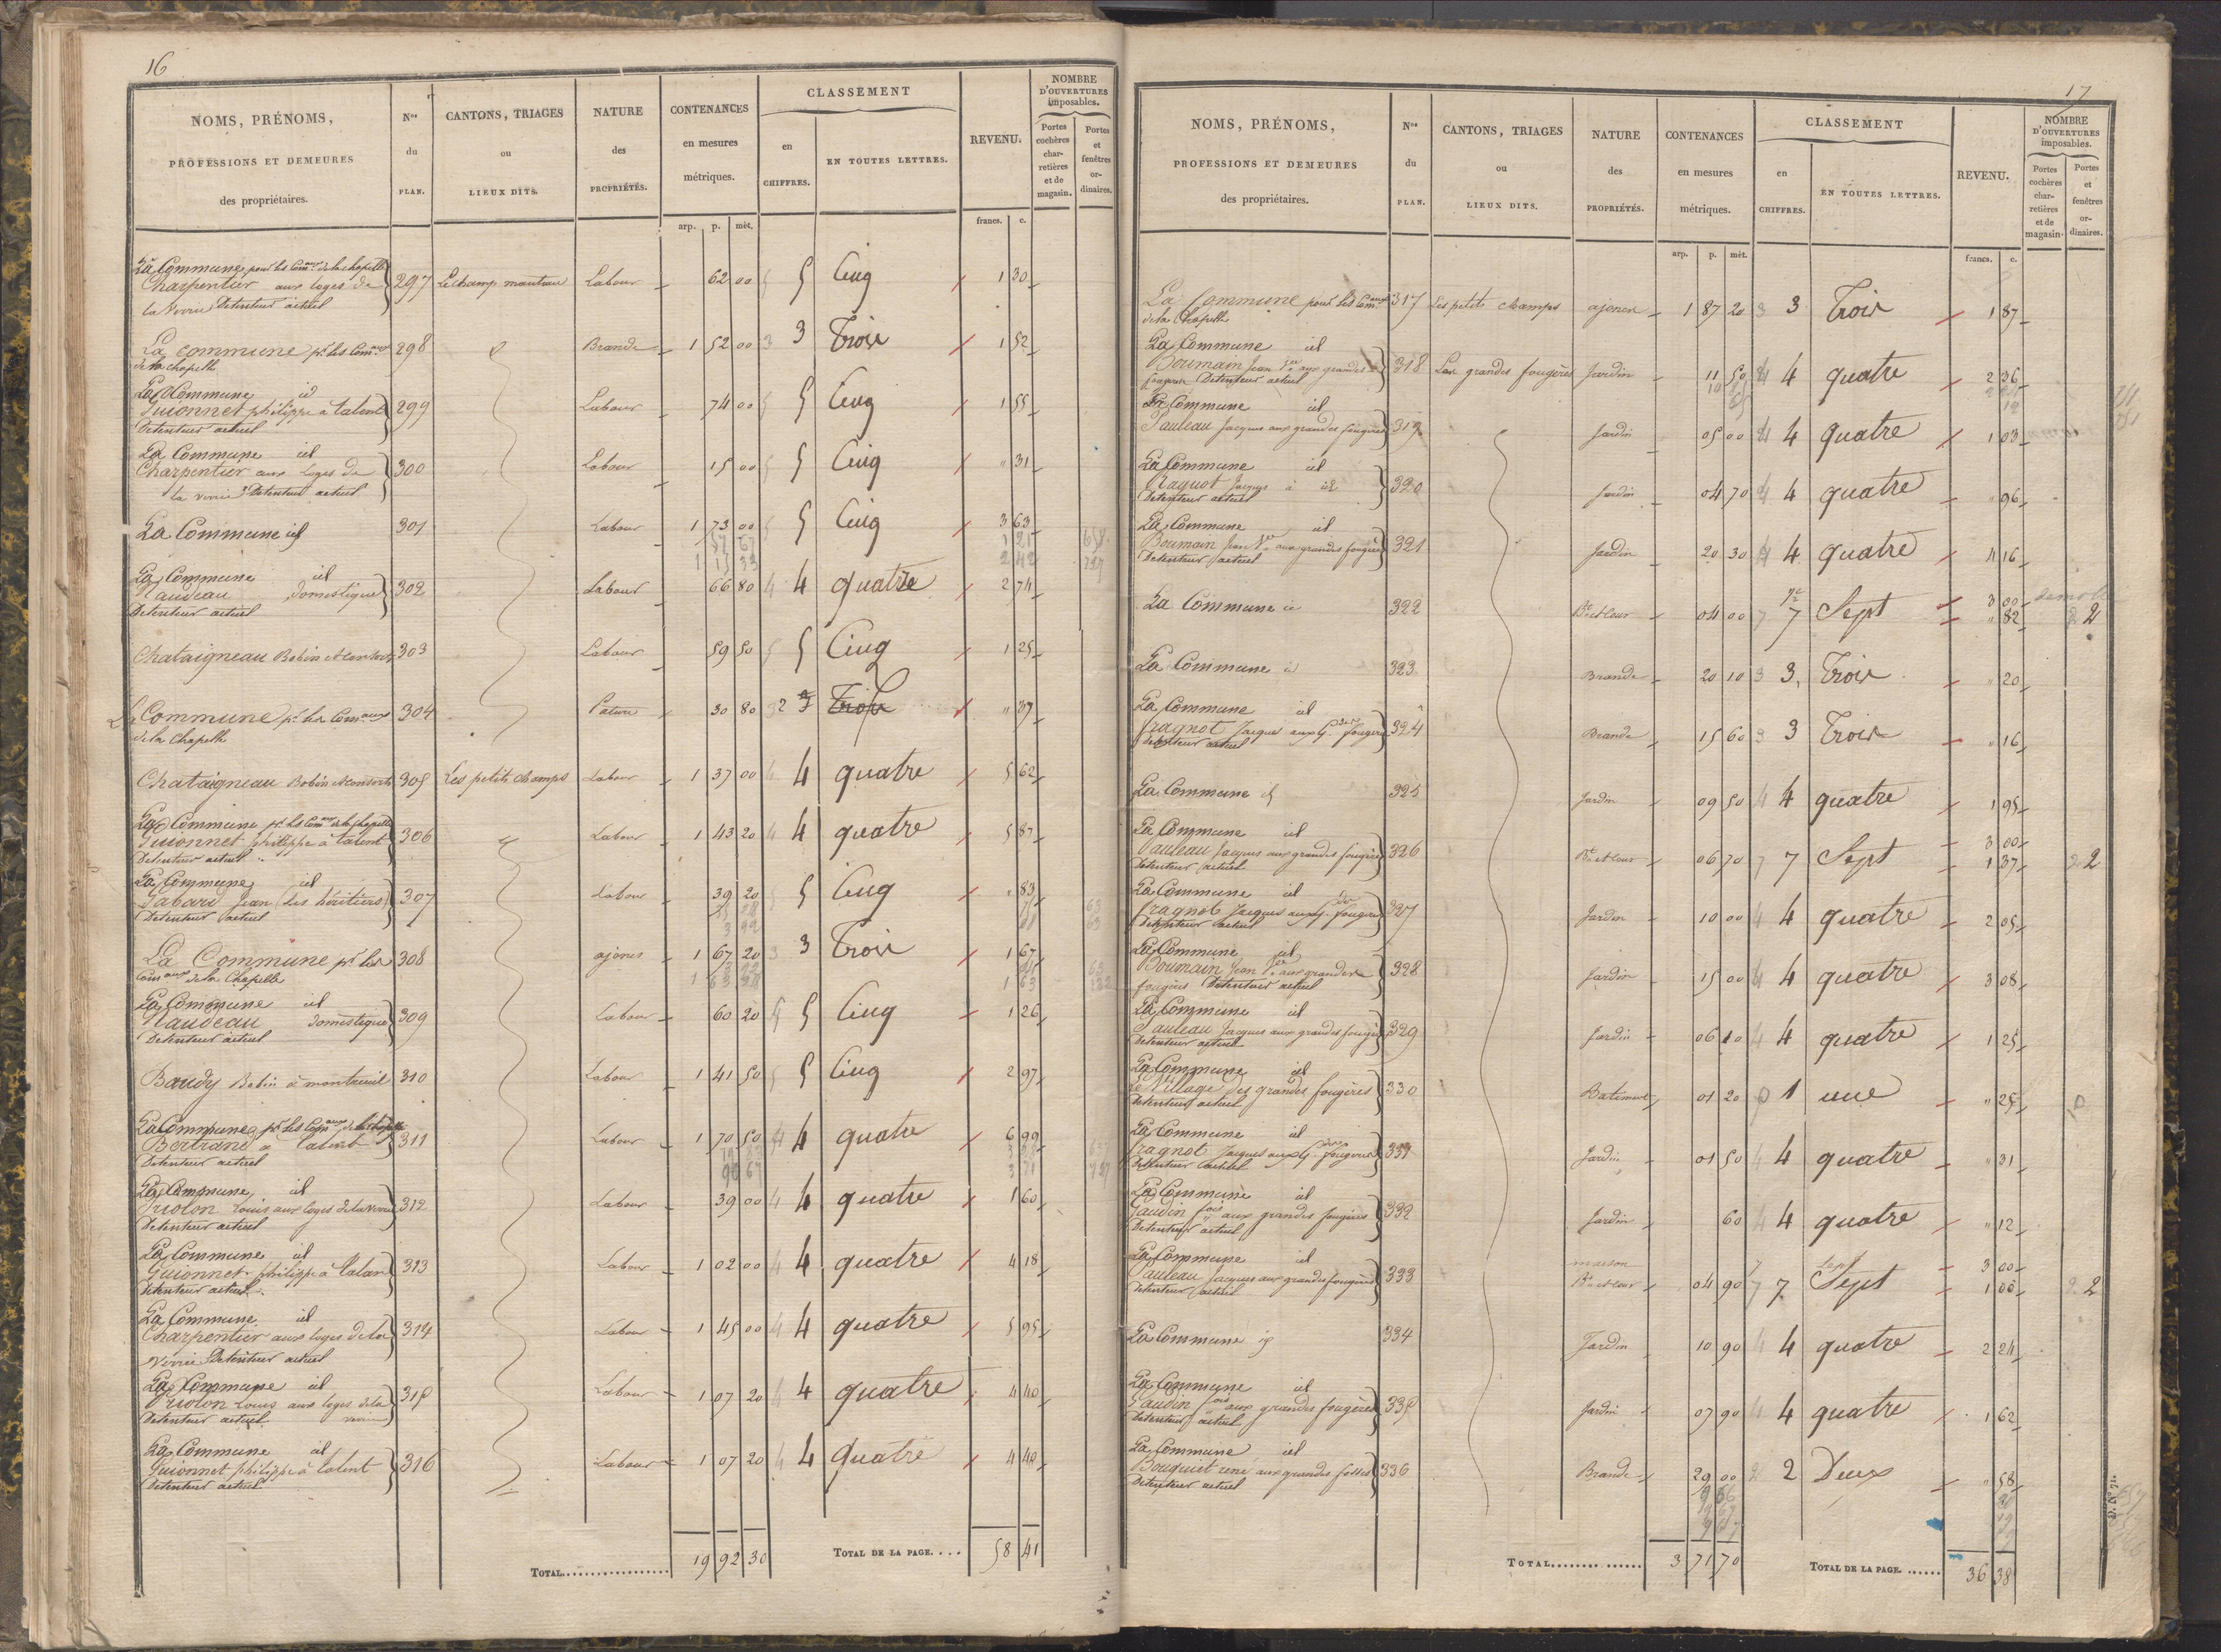 16
NOMS, PRÉNOMS,
PROFESSIONS ET DEMEURES
des propriétaires.
Nos
du
PLAN.
CANTONS, TRIAGES
ou
LIEUX DITS.
NATURE
des
PROPRIÉTÉS.
CONTENANCES
en mesures
métriques.
CLASSEMENT
en
CHIFFRES.
EN TOUTES LETTRES.
REVENU.
NOMBRE
D'OUVERTURES
imposables.
Portes
cochères
char-
retières
et de
magasin.
Portes
et
fenêtres
or-
dinaires.
arp. p. mèt. francs. c.
La Commune pour les Comaux de la chapelle
Charpentier aux loges de 297 Le champ manteau Labour 62 00 5 5 Cinq 1 30
la Verrie Detenteur actuel
La commune pr les Comaux 298 Brande 1 52 00 3 3 Trois 1 52
de la chapelle
La Commune id
Guionnet philippe à talent 299 Labour 74 00 5 5 Cinq 1 55
Detenteur actuel
La Commune id
Charpentier aux loges de 300 Labour 15 00 5 5 Cinq " 31
la verrie Detenteur actuel
La Commune id 301 Labour 1 73 00 5 5 Cinq 3 63
La Commune id
Naudeau domestique 302 Labour 66 80 4 4 quatre 2 74
Detenteur actuel
Chataigneau Bobin et Consorts 303 Labour 59 50 5 5 Cinq 1 25
La Commune pr les Comaux 304 Pature 30 80 3 2 Trois " 37
de la Chapelle
Chataigneau Bobin et consorts 305 Les petits champs Labour 1 37 00 4 4 quatre 5 62
La Commune pr les Comaux de la chapelle
Guionnet philippe à talent 306 Labour 1 43 20 4 4 quatre 5 87
Detenteur actuel
La Commune id
Gabard Jean (les héritiers) 307 Labour 39 20 5 5 Cinq " 83
Detenteur actuel
La Commune pr les 308 ajoncs 1 67 20 3 3 Trois 1 67
Comaux de la Chapelle
La Commune id
Naudeau domestique 309 Labour 60 20 5 5 Cinq 1 26
Detenteur actuel
Baudy Bobin à montreuil 310 Labour 1 41 50 5 5 Cinq 2 97
La Commune pr les Comaux de la chapelle
Bertrand à talent 311 Labour 1 70 50 4 4 quatre 6 99
Detenteur actuel
La Commune id
Priolon Louis aux loges de la Verrie 312 Labour 39 00 4 4 quatre 1 60
Detenteur actuel
La Commune id
Guionnet philippe à talan 313 Labour 1 02 00 4 4 quatre 4 18
Detenteur actuel
La Commune id
Charpentier aux loges de la 314 Labour 1 45 00 4 4 quatre 5 95
Verrie Detenteur actuel
La Commune id
Priolon Louis aux loges de la 315 Labour 1 07 20 4 4 quatre 4 40
Detenteur actuel verrie
La Commune id
Guionnet philippe à talent 316 Labour 1 07 20 4 4 quatre 4 40
Detenteur actuel
TOTAL 19 92 30 TOTAL DE LA PAGE.... 58 41
17
NOMS, PRÉNOMS,
PROFESSIONS ET DEMEURES
des propriétaires.
Nos
du
PLAN.
CANTONS, TRIAGES
ou
LIEUX DITS.
NATURE
des
PROPRIÉTÉS.
CONTENANCES
en mesures
métriques.
CLASSEMENT
en
CHIFFRES.
EN TOUTES LETTRES.
REVENU.
NOMBRE
D'OUVERTURES
imposables.
Portes
cochères
char-
retières
et de
magasin.
Portes
et
fenêtres
or-
dinaires.
arp. p. mèt. francs. c.
La Commune pour les Comaux 317 Les petits champs ajoncs 1 87 20 3 3 Trois 1 87
de la Chapelle
La Commune id
Boumain Jean Ve aux grandes 318 Les grandes fougères Jardin 11 50 4 4 quatre 2 36
fougeres Detenteur actuel
La Commune id
Pauleau Jacques aux grandes fougères 319 Jardin 05 00 4 4 quatre 1 03
La Commune id
Jacques à id 320 Jardin 04 70 4 4 quatre " 96
Detenteur actuel
La Commune id
Boumain Jean Ve aux grandes fougères 321 Jardin 20 30 4 4 quatre 4 16
Detenteur actuel
La Commune id 322 Bt et Cour 04 00 7 7 Sept 3 00 " 82 2 2
La Commune id 323 Brande 20 10 3 3 Trois " 20
La Commune id
fragnot Jacques aux Gdes fougères 324 Brande 15 60 3 3 Trois " 16
Detenteur actuel
La Commune id 325 Jardin 09 50 4 4 quatre 1 95
La Commune id
Pauleau Jacques aux grandes fougères 326 Bt et Cour 06 70 7 7 Sept 3 00 1 37 2 2
Detenteur actuel
La Commune id
fragnot Jacques aux Gdes fougères 327 Jardin 10 00 4 4 quatre 2 05
Detenteur actuel
La Commune id
Boumain Jean Ve aux grandes 328 Jardin 15 00 4 4 quatre 3 08
fougères Detenteur actuel
La Commune id
Pauleau Jacques aux grandes fougères 329 Jardin 06 10 4 4 quatre 1 25
Detenteur actuel
La Commune id
Le Village des grandes fougères 330 Batiment 01 20 1 une " 25
Detenteur actuel
La Commune id
fragnot Jacques aux Gdes fougeres 331 Jardin 01 50 4 4 quatre " 31
Detenteur actuel
La Commune id
Gaudin fois aux grandes fougères 332 Jardin 60 4 4 quatre " 12
Detenteur actuel
La Commune id maison Sept 3 00
Pauleau Jacques aux grandes fougères 333 Bt et Cour 04 90 7 7 Sept 1 00 2 2
Detenteur actuel
La Commune id 334 Jardin 10 90 4 4 quatre 2 24
La Commune id
Gaudin fois aux grandes fougères 335 Jardin 07 90 4 4 quatre 1 62
Detenteur actuel
La Commune id
Bouquiet rené aux grandes fosses 336 Brande 29 00 2 2 Deux " 58
Detenteur actuel
TOTAL 3 71 70 TOTAL DE LA PAGE. 36 38